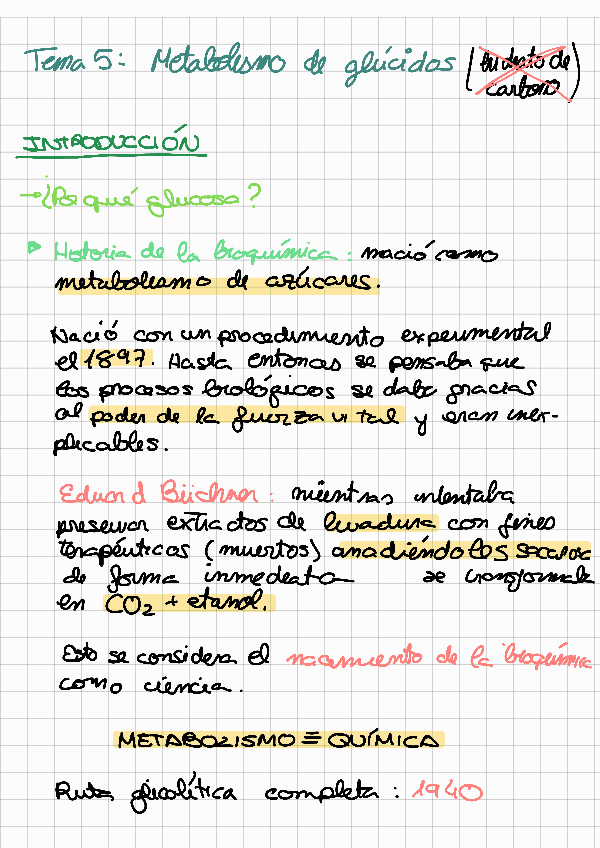 Tema 5: Metabolismo de glúcidos (hidrato de
carbono)
INTRODUCCIÓN
→¿Por qué glucosa?
▸ Historia de la bioquímica: nació como
metabolismo de azúcares.
Nació con un procedimiento experimental
el 1897. Hasta entonces se pensaba que
los procesos biológicos se daba gracias
al poder de la fuerza vital y eran inex-
plicables.
Eduard Büchner: mientras intentaba
preservar extractos de levadura con fines
terapéuticos (muertos) anadiéndolos sacarosa
de forma inmediata se transformaba
en CO₂ + etanol.
Esto se considera el nacimiento de la bioquímica
como ciencia.
METABOLISMO ≡ QUÍMICA
Ruta glicolítica completa: 1940